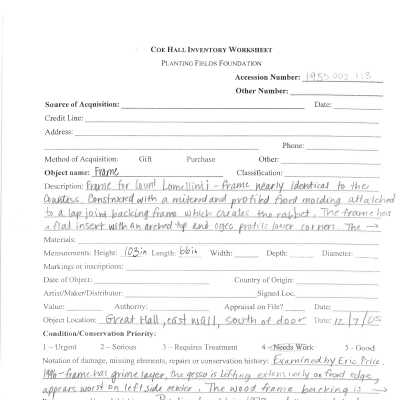 COE HALL INVENTORY WORKSHEET
PLANTING FIELDS FOUNDATION
Accession Number: 1955.002.113
Other Number:
Source of Acquisition: Date:
Credit Line:
Address:
Phone:
Method of Acquisition: Gift Purchase Other:
Object name: Frame Classification:
Description: Frame for Count Lomellini - Frame nearly identical to the
Countess. Constructed with a mitered and profiled front molding attatched
to a lap joint backing frame which creates the rabbet. The frame has
a flat insert with an arched top and ogee profile lower corners. The →
Materials:
Measurements: Height: 103in Length: 66in Width: Depth: Diameter:
Markings or inscriptions:
Date of Object: Country of Origin:
Artist/Maker/Distributor: Signed Loc.
Value: Authority: Appraisal on File? Date:
Object Location: Great Hall, east wall, south of door Date: 12/7/05
Condition/Conservation Priority:
1 – Urgent 2 – Serious 3 – Requires Treatment 4 – Needs Work 5 – Good
Notation of damage, missing elements, repairs or conservation history: Examined by Eric Price
1990 - frame has grime layer, the gesso is lifting extensively on front edge,
appears worst on left side . The wood frame backing is →